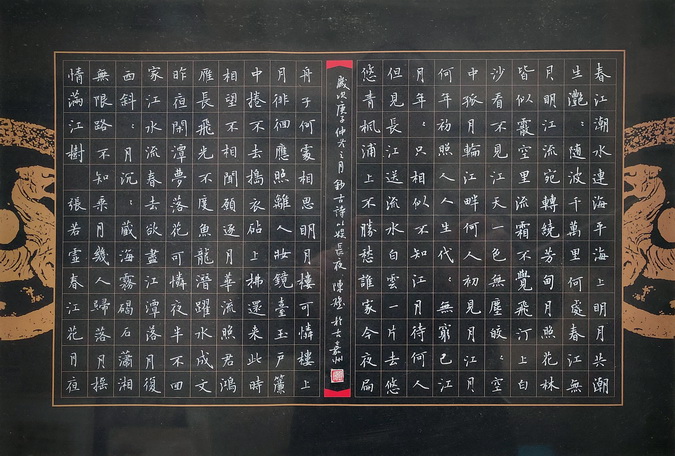 春江潮水連海平海上明月共潮
生灩：隨波千萬里何處春江無
月明江流宛轉繞芳甸月照花林
皆似霰空里流霜不覺飛汀上白
沙看不見江天一色無塵皎：空
中孤月輪江畔何人初見月江月
何年初照人人生代：無窮已江
月年：只相似不知江月待何人
但見長江送流水白雲一片去悠
悠青楓浦上不勝愁誰家今夜扁
歲次庚子仲冬之月 抄古詩以娛長夜 陳 於古嘉州
舟子何處相思明月樓可憐樓上
月徘徊應照離人妝鏡臺玉戶簾
中捲不去搗衣砧上拂還來此時
相望不相聞願逐月華流照君鴻
雁長飛光不度魚龍潛躍水成文
昨夜閑潭夢落花可憐夜半不回
家江水流春去欲盡江潭落月復
西斜：月沉：藏海霧碣石瀟湘
無限路不知乘月幾人歸落月搖
情滿江樹 張若虛春江花月夜